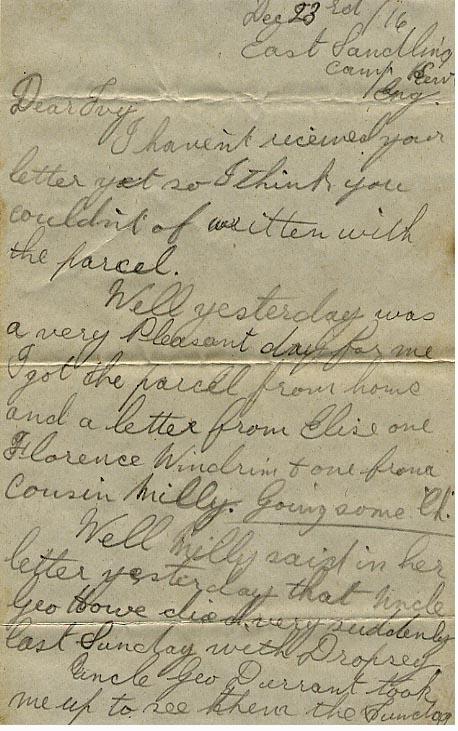 Dec 23rd/16
East Sandling
Camp
Eng.
Dear Ivy
I havent received your
letter yet so I think you
couldn't of written with
the parcel.
Well yesterday was
a very Pleasant day for me
I got the parcel from home
and a letter from Elsie one
Florence Windrim & one from
Cousin Milly. Going some Eh.
Well Milly said in her
letter yesterday that Uncle
Geo Howe died very suddenly
last Sunday with Dropsey.
Uncle Geo Durrant took
me up to see them the Sunday